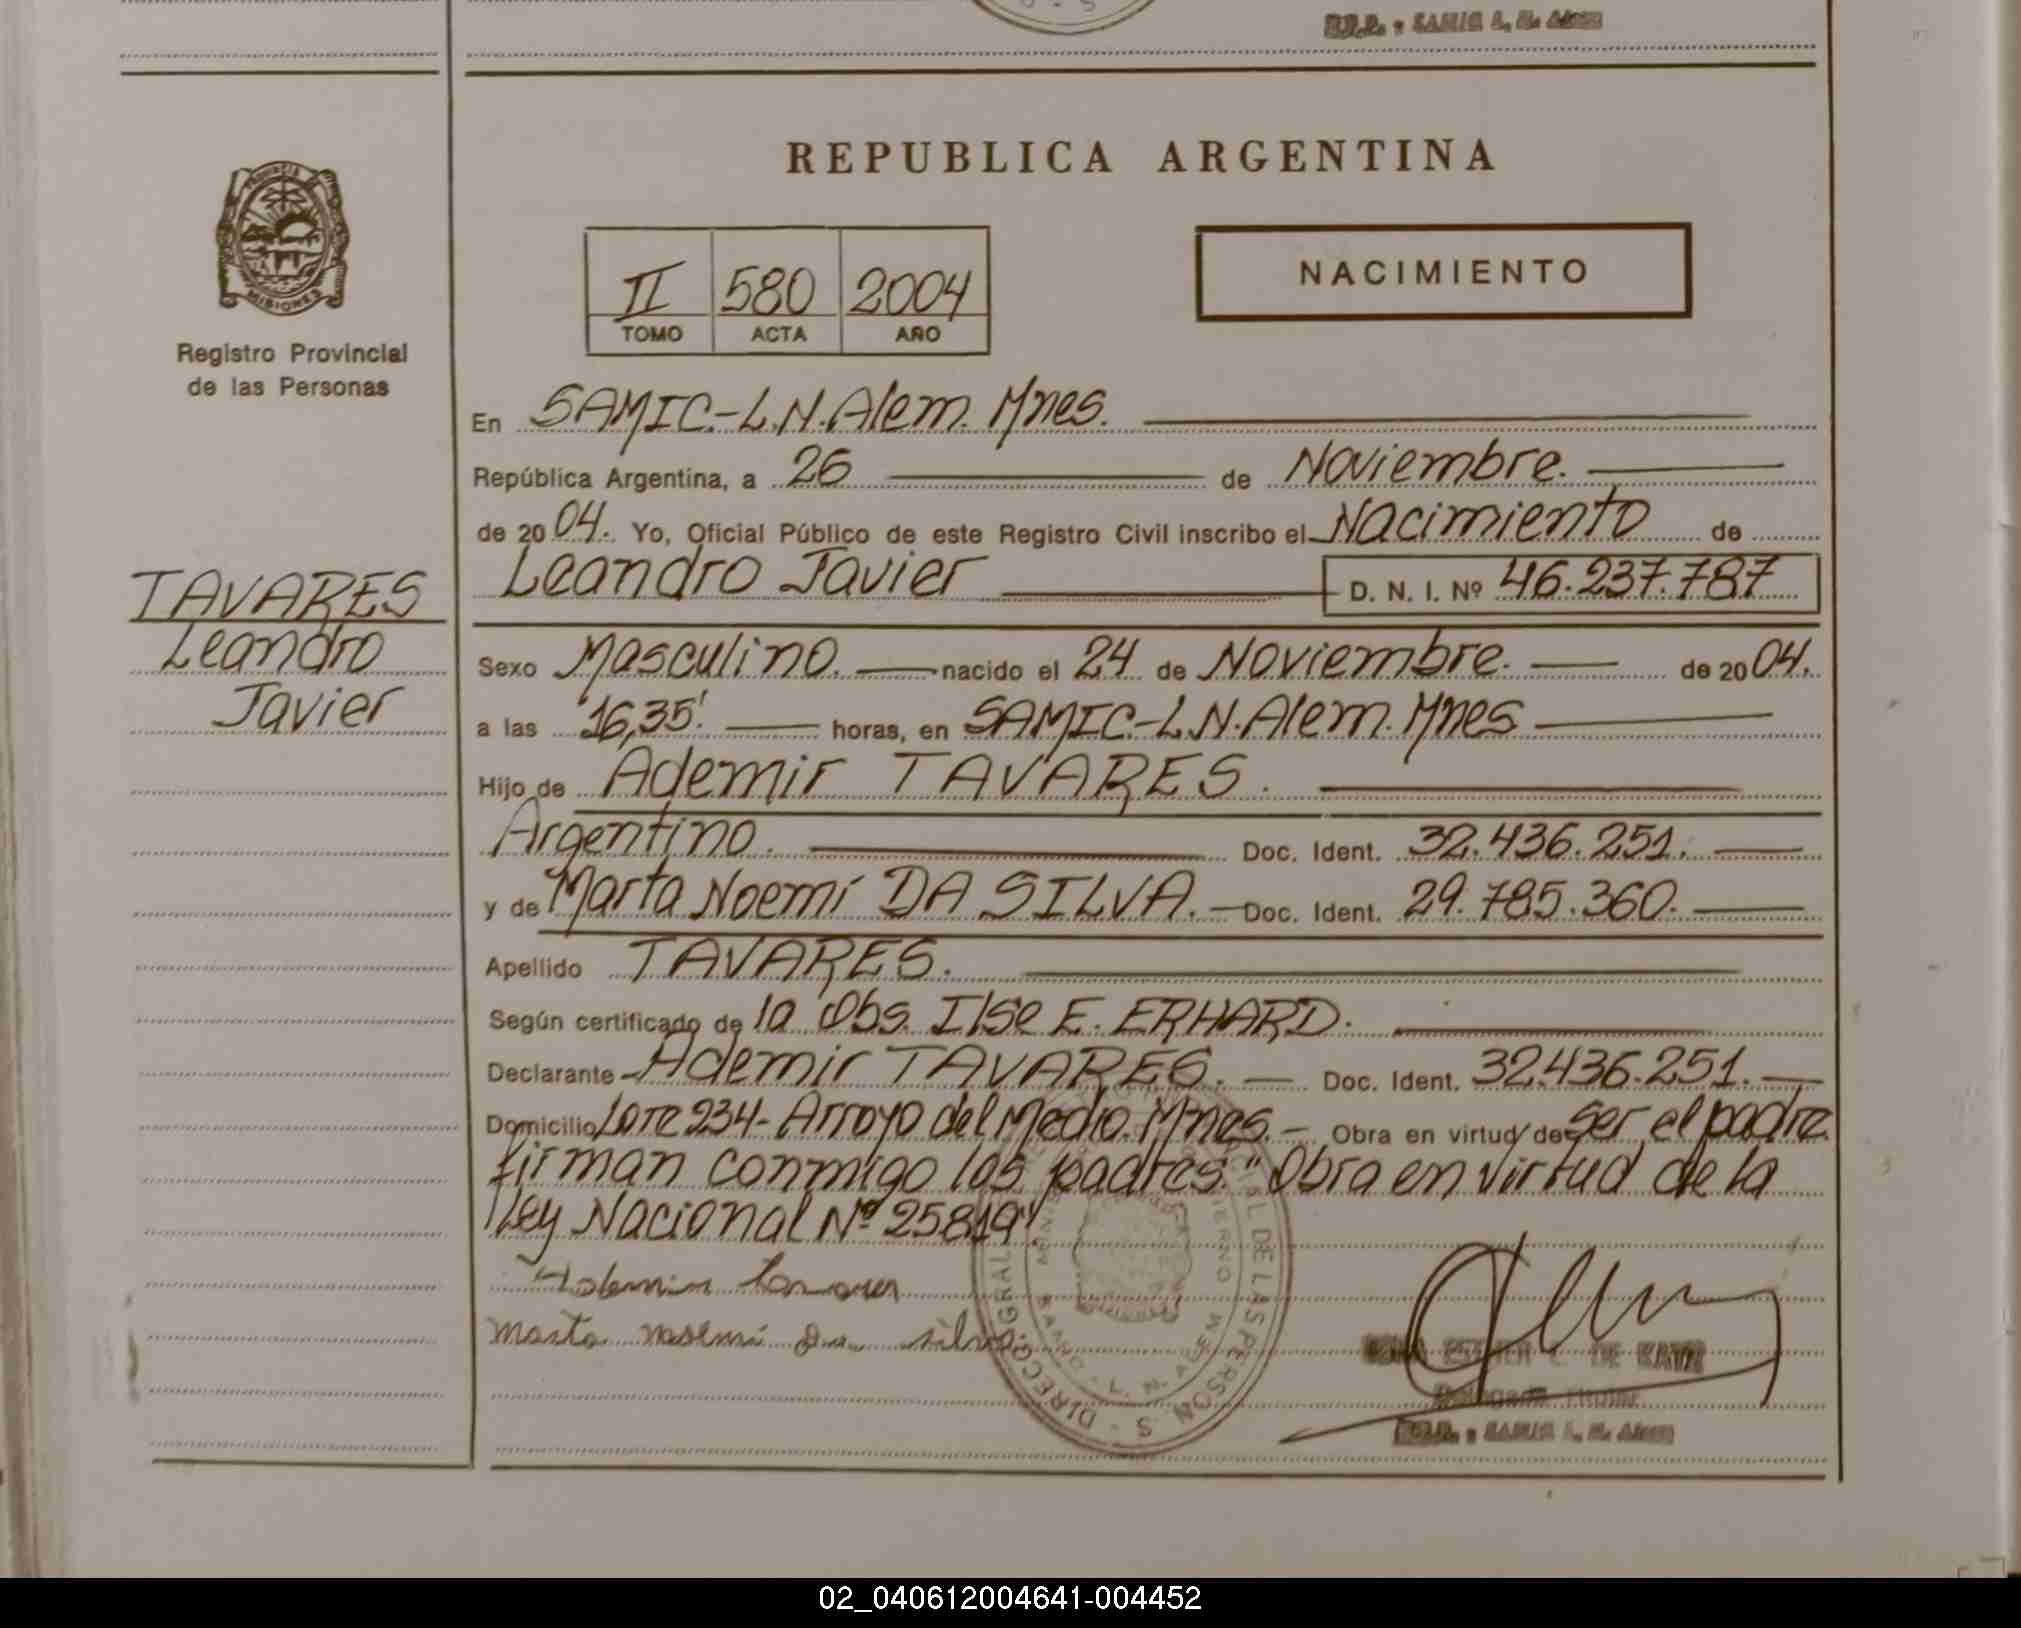 R.P.P. - SAMIC L. N. Alem
REPUBLICA ARGENTINA
PROVINCIA DE
MISIONES
Registro Provincial
de las Personas
II 580 2004
TOMO ACTA AÑO
NACIMIENTO
En SAMIC.-L.N.Alem. Mnes.
República Argentina, a 26 de Noviembre.
de 2004. Yo, Oficial Público de este Registro Civil inscribo el Nacimiento de
Leandro Javier D. N. I. Nº 46.237.787
TAVARES
Leandro
Javier
Sexo Masculino. nacido el 24 de Noviembre. de 2004.
a las 16,35' horas, en SAMIC.-L.N.Alem. Mnes
Hijo de Ademir TAVARES.
Argentino. Doc. Ident. 32.436.251.
y de Marta Noemí DA SILVA. Doc. Ident. 29.785.360.
Apellido TAVARES.
Según certificado de la Obs. Ilse E. ERHARD.
Declarante Ademir TAVARES. Doc. Ident. 32.436.251.
Domicilio Lote 234- Arroyo del Medio. Mnes. Obra en virtud de ser el padre
firman conmigo los padres. "Obra en virtud de la
Ley Nacional Nº 25819".
Ademir Tavares
Marta noemi Da silva
ESTHER C. DE
Delegada Titular
R.P.P. - SAMIC L. N. Alem
02_040612004641-004452